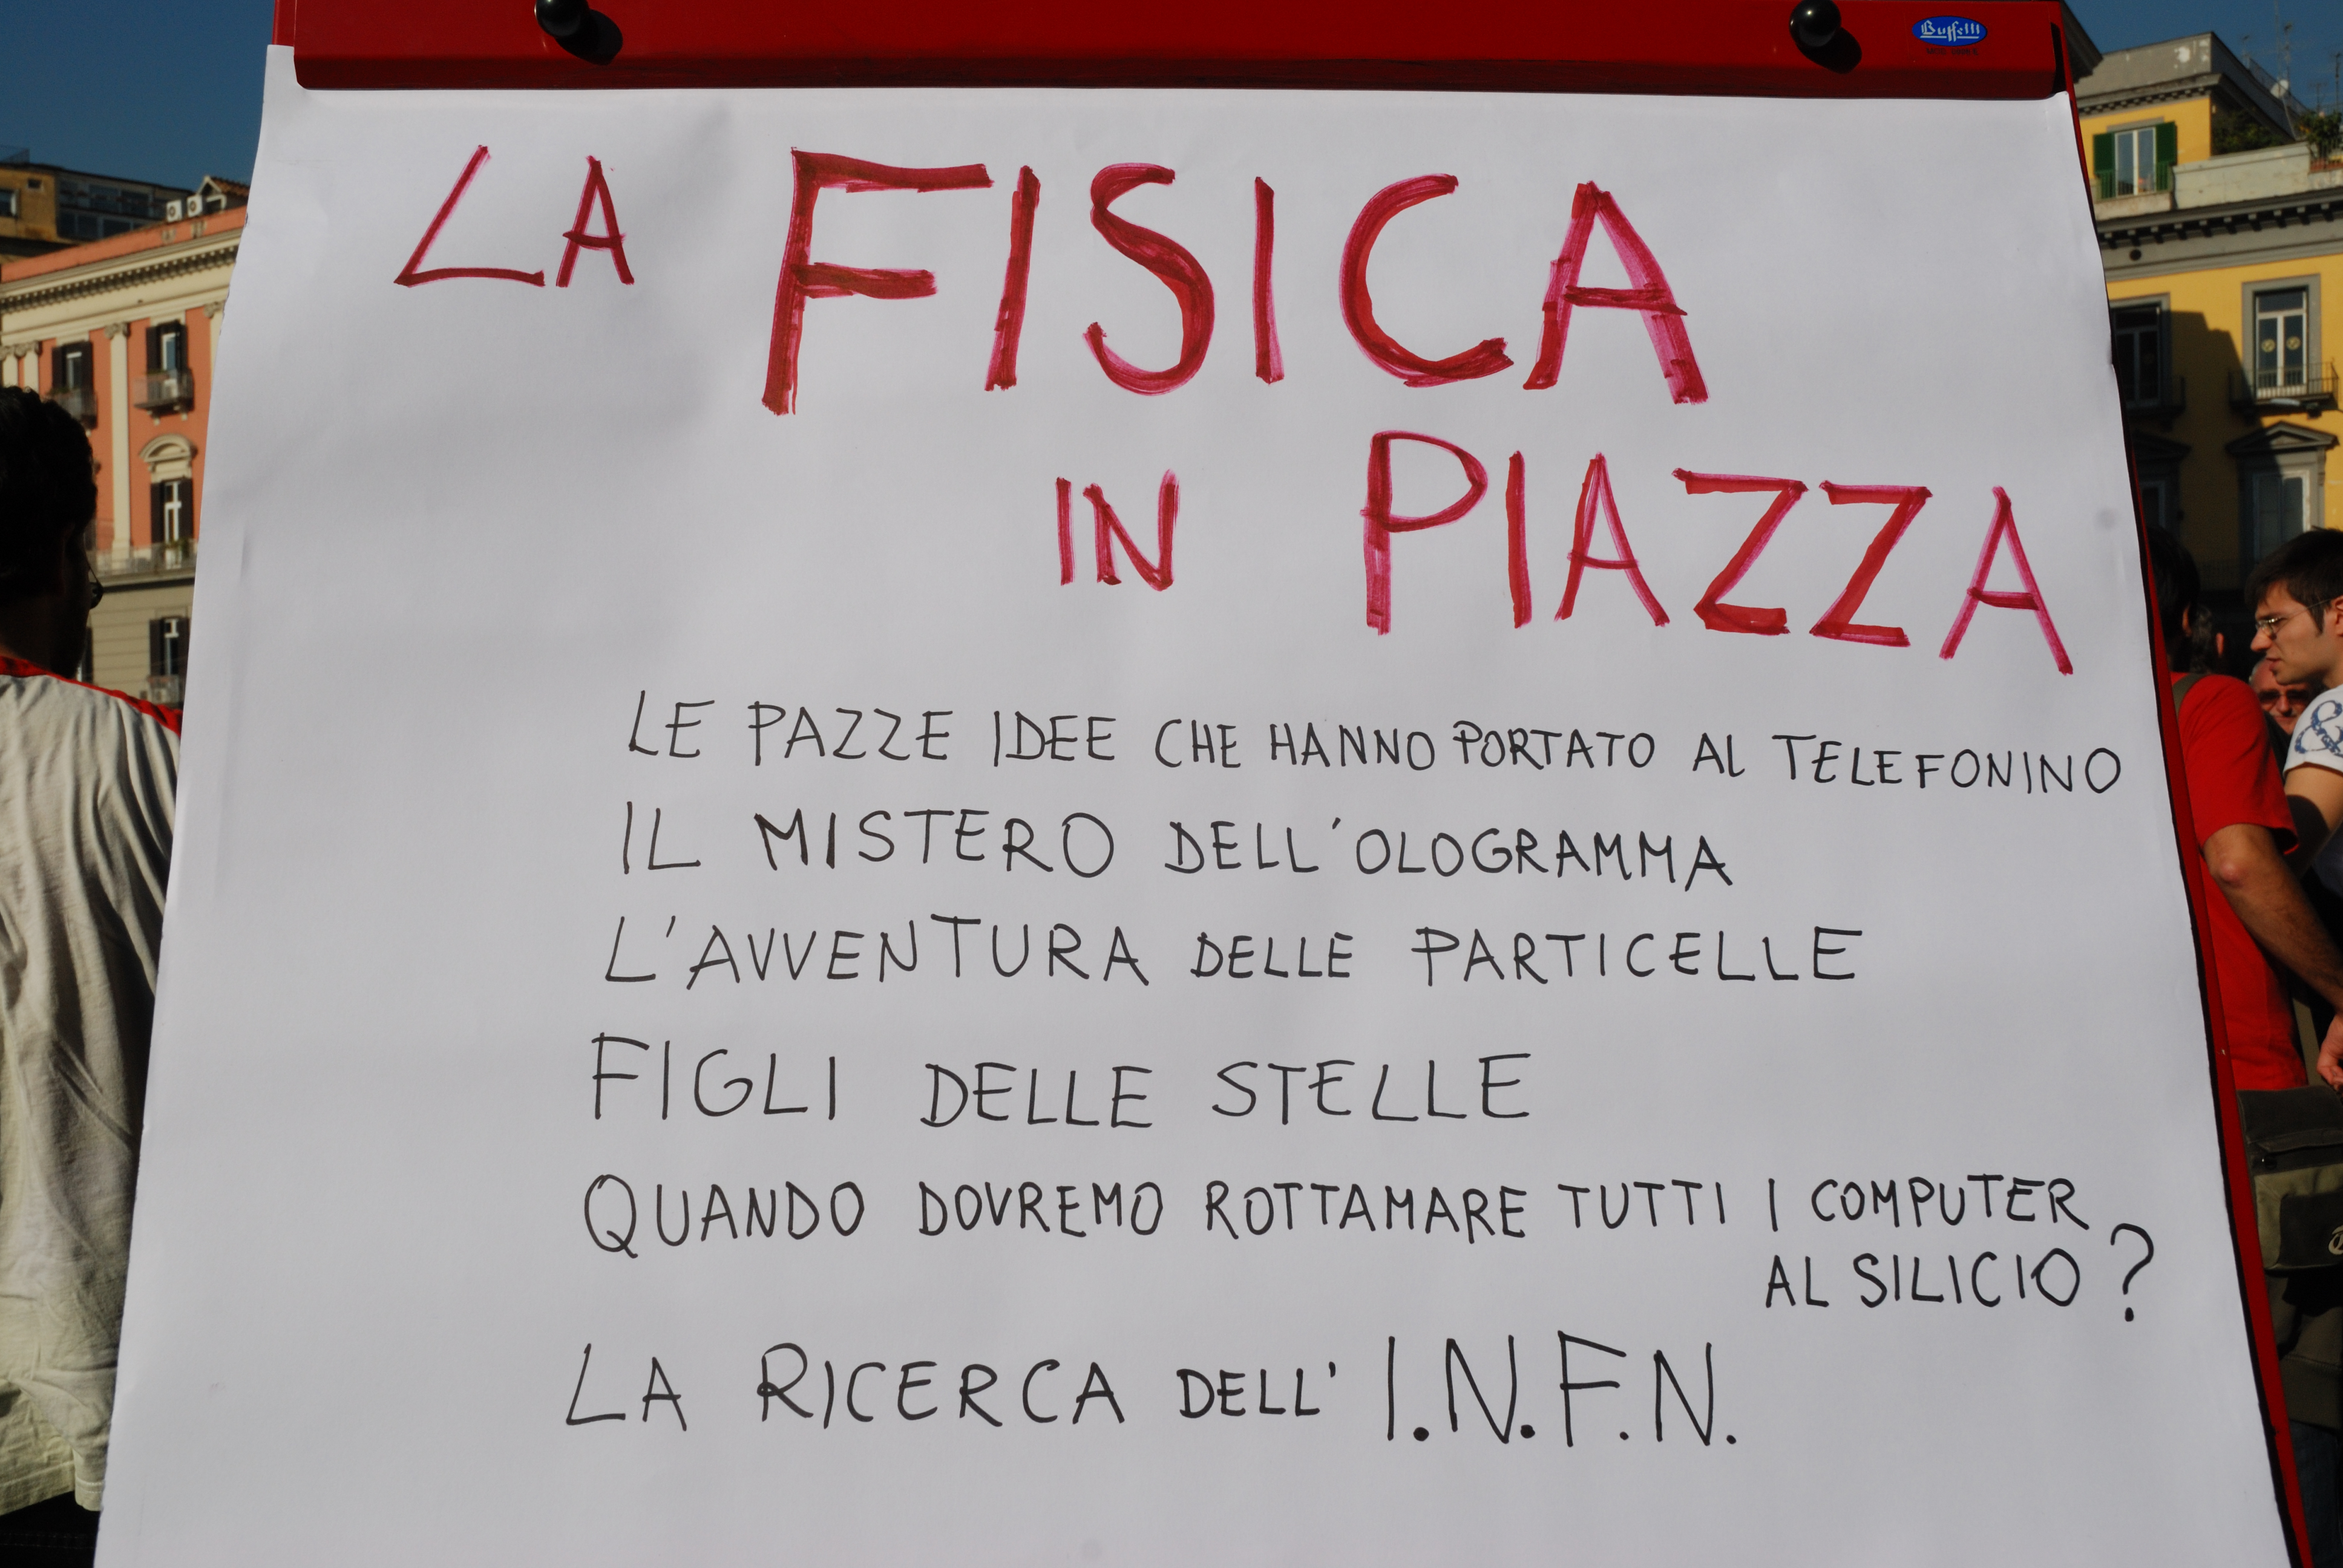 Buffetti
LA FISICA
IN PIAZZA
LE PAZZE IDEE CHE HANNO PORTATO AL TELEFONINO
IL MISTERO DELL'OLOGRAMMA
L'AVVENTURA DELLE PARTICELLE
FIGLI DELLE STELLE
QUANDO DOVREMO ROTTAMARE TUTTI I COMPUTER
AL SILICIO?
LA RICERCA DELL' I.N.F.N.